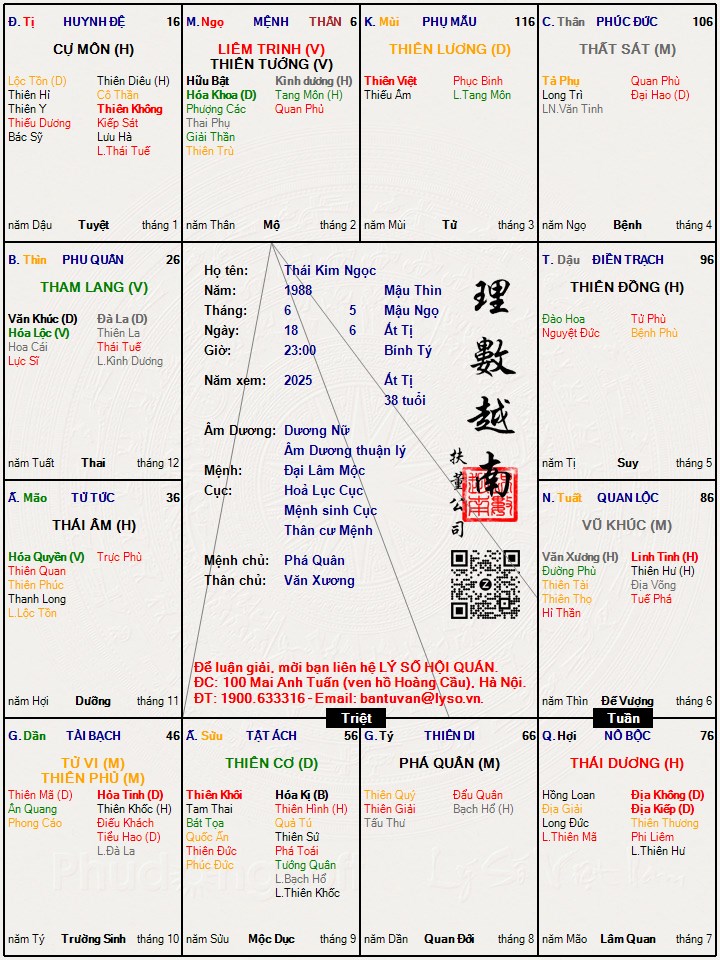 Đ. Tị HUYNH ĐỆ 16
CỰ MÔN (H)
Lộc Tồn (D) Thiên Diêu (H)
Thiên Hỉ Cô Thần
Thiên Y Thiên Không
Thiếu Dương Kiếp Sát
Bác Sỹ Lưu Hà
L.Thái Tuế
năm Dậu Tuyệt tháng 1
M. Ngọ MỆNH THÂN 6
LIÊM TRINH (V)
THIÊN TƯỚNG (V)
Hữu Bật Kình dương (H)
Hóa Khoa (D) Tang Môn (H)
Phượng Các Quan Phủ
Thai Phụ
Giải Thần
Thiên Trù
năm Thân Mộ tháng 2
K. Mùi PHỤ MẪU 116
THIÊN LƯƠNG (D)
Thiên Việt Phục Binh
Thiếu Âm L.Tang Môn
năm Mùi Tử tháng 3
C. Thân PHÚC ĐỨC 106
THẤT SÁT (M)
Tả Phụ Quan Phù
Long Trì Đại Hao (D)
LN.Văn Tinh
năm Ngọ Bệnh tháng 4
B. Thìn PHU QUÂN 26
THAM LANG (V)
Văn Khúc (D) Đà La (D)
Hóa Lộc (V) Thiên La
Hoa Cái Thái Tuế
Lực Sĩ L.Kình Dương
năm Tuất Thai tháng 12
Họ tên: Thái Kim Ngọc
Năm: 1988 Mậu Thìn
Tháng: 6 5 Mậu Ngọ
Ngày: 18 6 Ất Tị
Giờ: 23:00 Bính Tý
Năm xem: 2025 Ất Tị
38 tuổi
Âm Dương: Dương Nữ
Âm Dương thuận lý
Mệnh: Đại Lâm Mộc
Cục: Hoả Lục Cục
Mệnh sinh Cục
Thân cư Mệnh
Mệnh chủ: Phá Quân
Thân chủ: Văn Xương
理數越南
扶董公司
Để luận giải, mời bạn liên hệ LÝ SỐ HỘI QUÁN.
ĐC: 100 Mai Anh Tuấn (ven hồ Hoàng Cầu), Hà Nội.
ĐT: 1900.633316 - Email: bantuvan@lyso.vn.
T. Dậu ĐIỀN TRẠCH 96
THIÊN ĐỒNG (H)
Đào Hoa Tử Phù
Nguyệt Đức Bệnh Phù
năm Tị Suy tháng 5
Ấ. Mão TỬ TỨC 36
THÁI ÂM (H)
Hóa Quyền (V) Trực Phù
Thiên Quan
Thiên Phúc
Thanh Long
L.Lộc Tồn
năm Hợi Dưỡng tháng 11
N. Tuất QUAN LỘC 86
VŨ KHÚC (M)
Văn Xương (H) Linh Tinh (H)
Đường Phù Thiên Hư (H)
Thiên Tài Địa Võng
Thiên Thọ Tuế Phá
Hỉ Thần
năm Thìn Đế Vượng tháng 6
Triệt
Tuần
G. Dần TÀI BẠCH 46
TỬ VI (M)
THIÊN PHỦ (M)
Thiên Mã (D) Hỏa Tinh (D)
Ân Quang Thiên Khốc (H)
Phong Cáo Điếu Khách
Tiểu Hao (D)
L.Đà La
năm Tý Trường Sinh tháng 10
Ấ. Sửu TẬT ÁCH 56
THIÊN CƠ (D)
Thiên Khôi Hóa Kị (B)
Tam Thai Thiên Hình (H)
Bát Tọa Quả Tú
Quốc Ấn Thiên Sứ
Thiên Đức Phá Toái
Phúc Đức Tướng Quân
L.Bạch Hổ
L.Thiên Khốc
năm Sửu Mộc Dục tháng 9
G. Tý THIÊN DI 66
PHÁ QUÂN (M)
Thiên Quý Đẩu Quân
Thiên Giải Bạch Hổ (H)
Tấu Thư
năm Dần Quan Đới tháng 8
Q. Hợi NÔ BỘC 76
THÁI DƯƠNG (H)
Hồng Loan Địa Không (D)
Địa Giải Địa Kiếp (D)
Long Đức Thiên Thương
L.Thiên Mã Phi Liêm
L.Thiên Hư
năm Mão Lâm Quan tháng 7